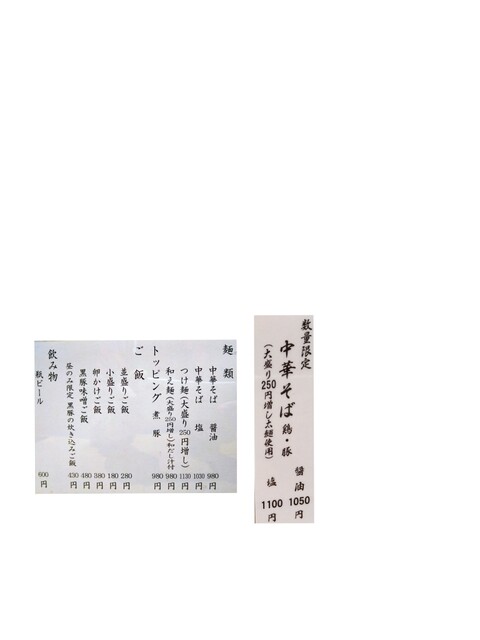 麺類
中華そば 醤油 980円
中華そば 塩 1030円
つけ麺(大盛り250円増し) 1130円
和え麺(大盛り250円増し)和だし汁付 980円
トッピング 煮豚 980円
ご飯
並盛りご飯 280円
小盛りご飯 180円
卵かけご飯 380円
黒豚味噌ご飯 480円
昼のみ限定 黒豚の炊き込みご飯 430円
飲み物
瓶ビール 600円
数量限定
中華そば 鶏・豚 醤油 1050円
(大盛り250円増し太麺使用) 塩 1100円